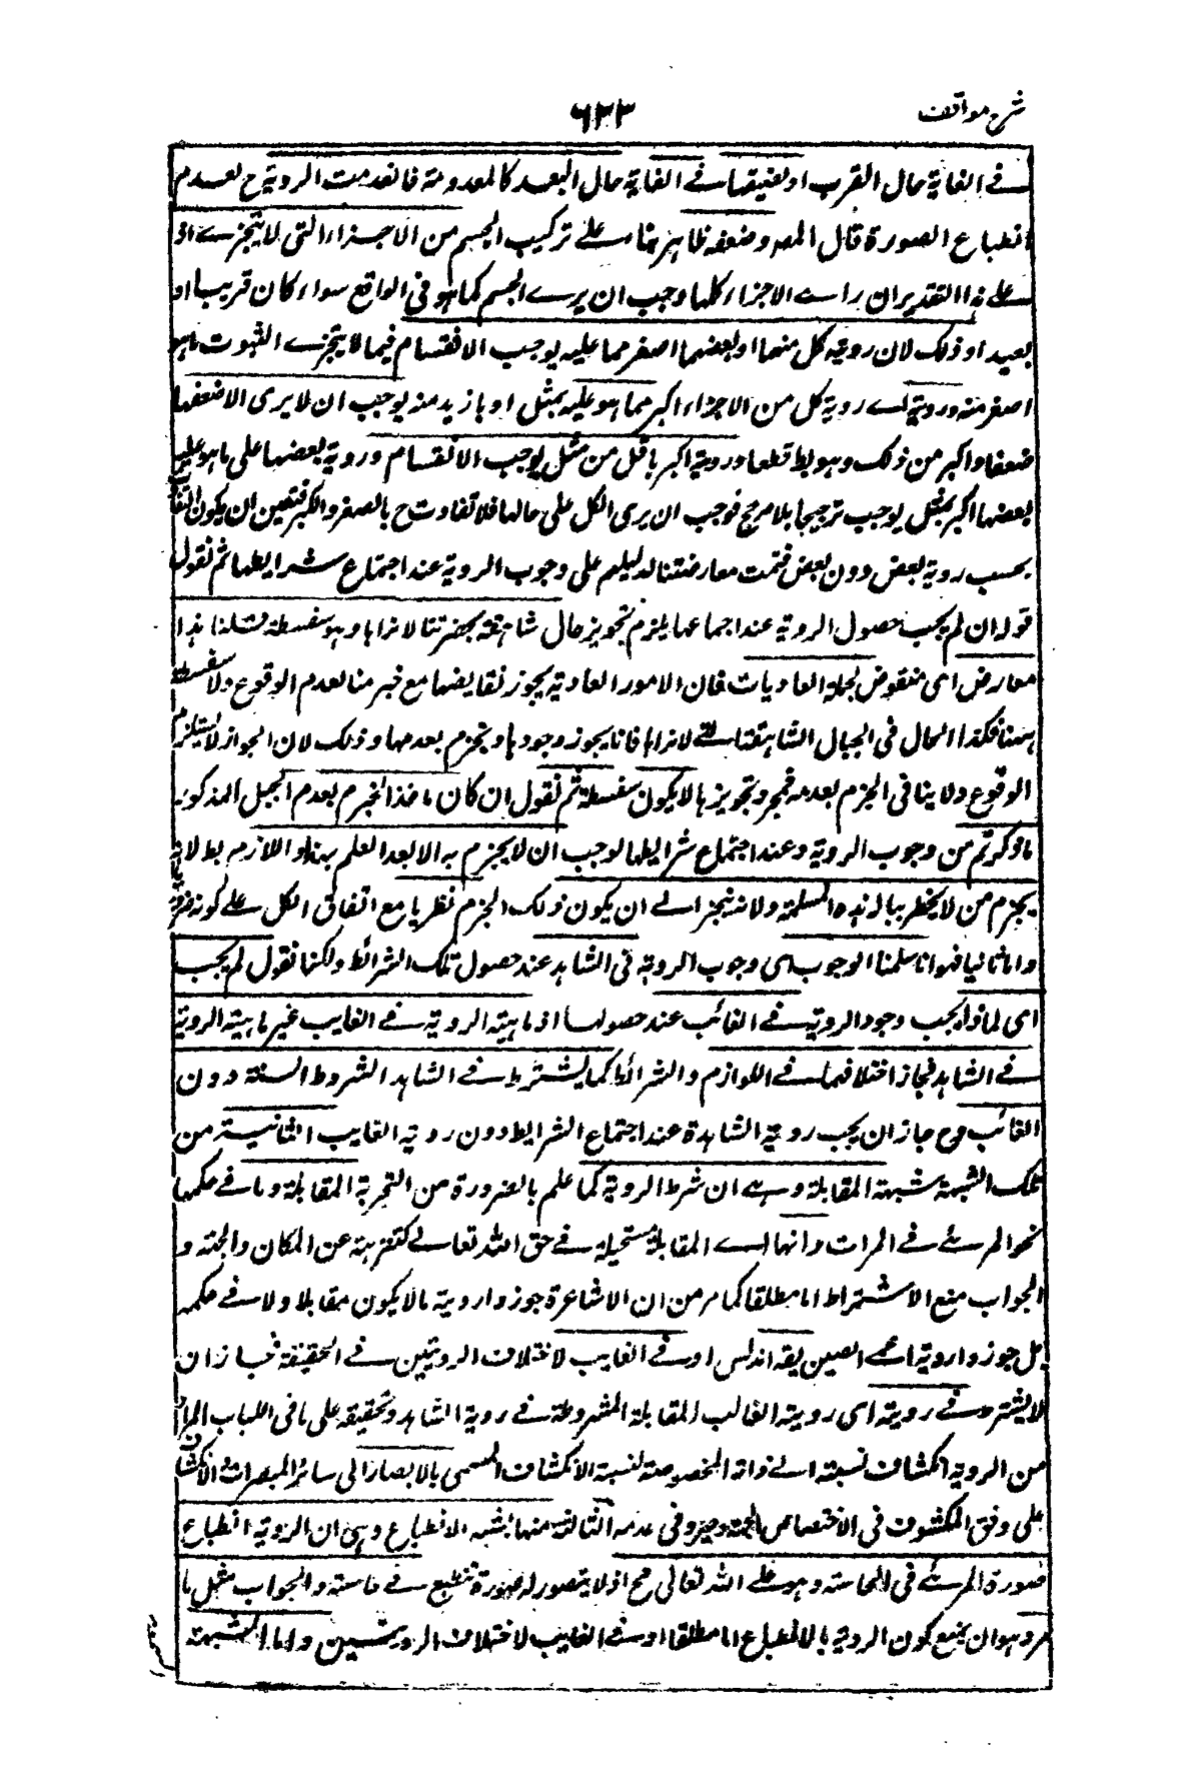 شرح مواقف
٦٣٣
فى الغاية حال القرب او لضيقها فى الغاية حال البعد كالمعدومة فانعدمت الروية ح لعدم
انطباع الصورة قال المص وضعفه ظاهر بناء على تركيب الجسم من الاجزاء التى لا يتجزى اذ
على هذا التقدير ان راى الاجزاء كلها وجب ان يرى الجسم كما هو فى الواقع سواء كان قريبا او
بعيدا وذلك لان روية كل منها او بعضها اصغر مما عليه يوجب الانقسام فيما لا يتجزى لثبوت ما هو
اصغر منه وروية اى روية كل من الاجزاء اكبر مما هو عليه بمثل او بازيد منه يوجب ان لا يرى الا ضعفها
ضعفا واكبر من ذلك وهو بط قطعا وروية اكبر باقل من مثل يوجب الانقسام وروية بعضها على ما هو عليه
بعضها اكبر بمثل يوجب ترجيحا بلا مرجح فوجب ان يرى الكل على حالها فلا تفاوت ح بالصغر والكبر فتعين ان يكون التفا
بحسب روية بعض دون بعض فتمت معارضتنا لدليلهم على وجوب الروية عند اجتماع شرايطها ثم نقول
قوله ان لم يجب حصول الروية عند اجماعها يلزم تجويز حال شاهقة بحضرتنا لا نراها وهو سفسطة قلنا هذا
معارض اى منقوض بجملة العاديات فان الامور العادية يجوز نقايضها مع جزمنا بعدم الوقوع ولا سفسطة
ههنا فكذا الحال فى الجبال الشاهقة التى لا نراها فانا يجوز وجودها ونجزم بعدمها وذلك لان الجواز لا يستلزم
الوقوع ولا ينافى الجزم بعدمه فمجرد تجويزها لا يكون سفسطة ثم نقول ان كان ماخذ الجزم بعدم الجبل المذكور
ما ذكرتم من وجوب الروية وعند اجتماع شرايطها لوجب ان لا يجزم به الا بعد العلم بهذا واللازم بط لانه
يجزم من لا يخطر بباله هذه المسئلة ولانه ينجر الى ان يكون ذلك الجزم نظريا مع اتفاق الكل على كونه ضروريا
واما ثانيا فهو انا سلمنا الوجوب اى وجوب الروية فى الشاهد عند حصول تلك الشرائط ولكنا نقول لم يجب
اى لماذا يجب وجود الروية فى الغائب عند حصولها اذ ماهية الروية فى الغايب غير ماهية الروية
فى الشاهد فجاز اختلافهما فى اللوازم والشرائط كما يشترط فى الشاهد الشروط الستة دون
الغائب وح جاز ان يجب روية الشاهدة عند اجتماع الشرايط دون روية الغايب الثانية من
تلك الشبهة شبهة المقابلة وهى ان شرط الروية كما علم بالضرورة من التجربة المقابلة وما فى حكمها
نحو المرئى فى المرات وانها اى المقابلة مستحيلة فى حق الله تعالى لتنزهه عن المكان والجهة و
الجواب منع الاشتراط اما مطلقا كما مر من ان الاشاعرة جوزوا روية ما لا يكون مقابلا ولا فى حكمه
بل جوزوا روية اعمى الصين بقة اندلس او فى الغايب لاختلاف الرويتين فى الحقيقة فجاز ان
لا يشترط فى رويته اى روية الغائب المقابلة المشروطة فى روية الشاهد وتحقيقه على ما فى اللباب المراد
من الروية انكشاف نسبته الى ذاته المخصوصة كنسبة الانكشاف المسمى بالابصار الى سائر المبصرات والانكشاف
على وفق المكشوف فى الاختصاص بالجهة وحيز وفى عدمه الثالثة منها شبهة الانطباع وهى ان الروية انطباع
صورة المرئى فى الحاسة وهو على الله تعالى مح اذ لا يتصور له صورة تنطبع فى حاسته والجواب مثل ما
مر وهو ان يمنع كون الروية بالانطباع اما مطلقا او فى الغايب لاختلاف الرويتين واما الشبهة